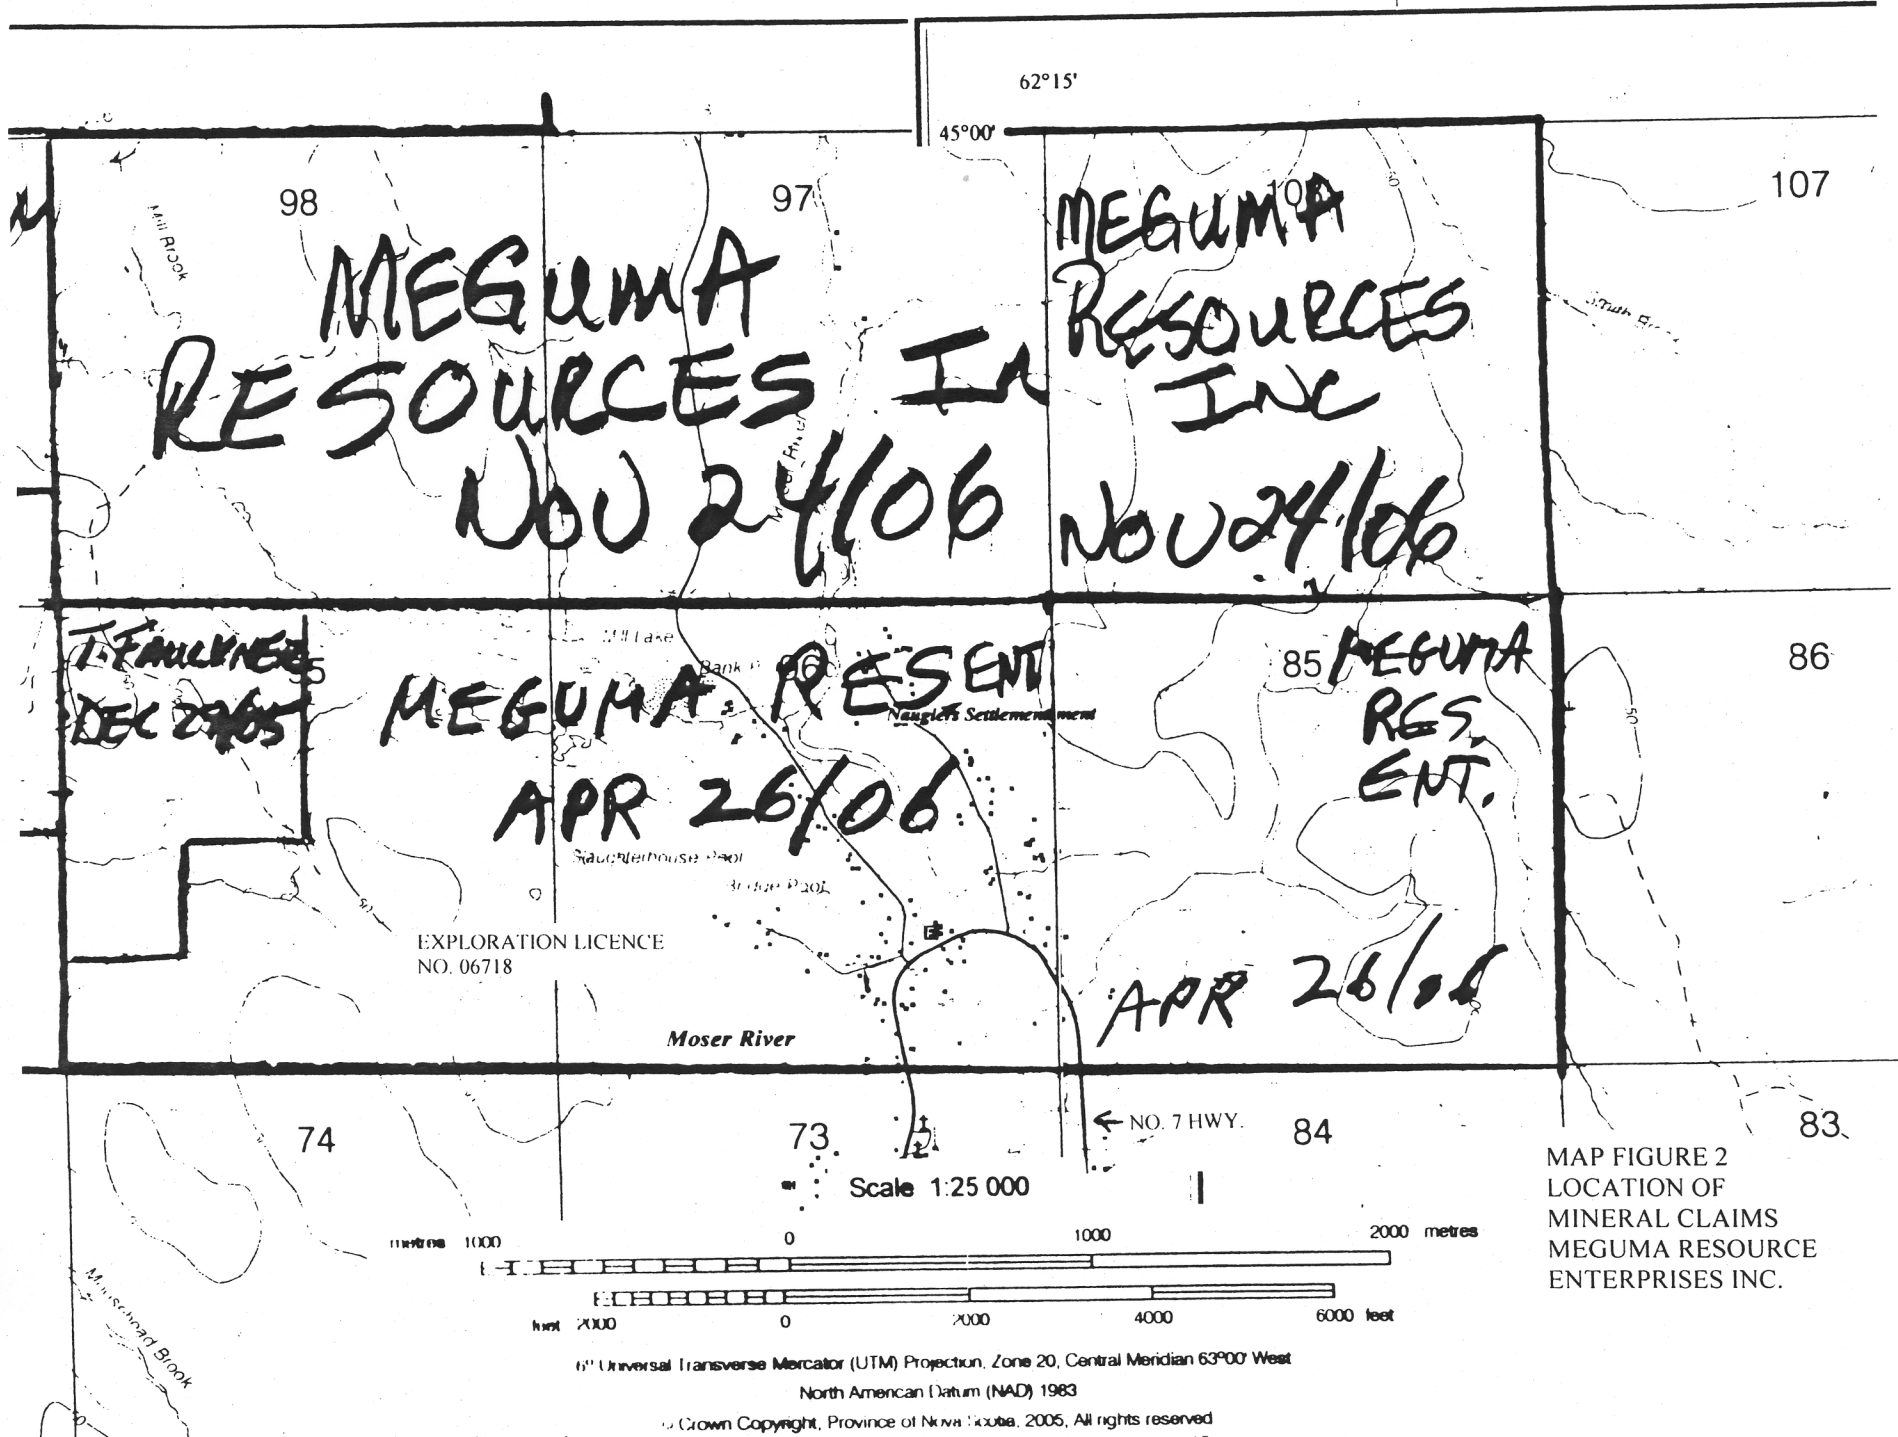 62°15'
45°00'
98
97
107
Mill Brook
MEGUMA
RESOURCES In
NOV 24/06
MEGUMA
RESOURCES
INC
NOV 24/06
T. FAULKNER
DEC 29/05
Mill Lake
MEGUMA. RES ENT
Nauglers Settlement
APR 26/06
Slaughterhouse Pool
Bridge Pool
85
MEGUMA
RES.
ENT.
APR 26/06
86
50
50
EXPLORATION LICENCE
NO. 06718
Moser River
74
73
← NO. 7 HWY.
84
83
Scale 1:25 000
metres 1000 0 1000 2000 metres
feet 2000 0 2000 4000 6000 feet
6° Universal Transverse Mercator (UTM) Projection, Zone 20, Central Meridian 63°00' West
North American Datum (NAD) 1983
© Crown Copyright, Province of Nova Scotia, 2005, All rights reserved
Moosehead Brook
MAP FIGURE 2
LOCATION OF
MINERAL CLAIMS
MEGUMA RESOURCE
ENTERPRISES INC.